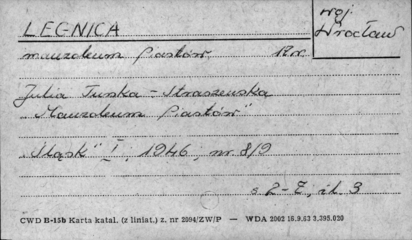 LEGNICA
woj.
Wrocław
mauzoleum Piastów
Julia Turska-Straszewska
"Mauzoleum Piastów"
"Śląsk" I, 1946, nr 8/9
s 2-7, il. 3
CWD B-15b Karta katal. (z liniat.) z. nr 2094/ZW/P — WDA 2002 16.9.63 3,395.020